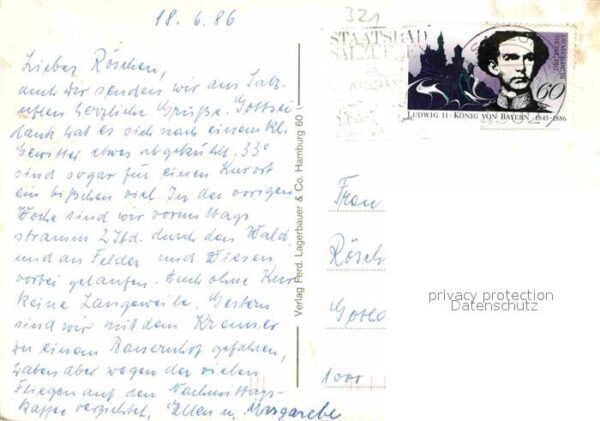 18.6.86
Liebes Röschen,
auch wir senden wir aus Salz-
uflen herzliche Grüße. Gottsei
dank hat es sich nach einem kl.
Gewitter etwas abgekühlt. 33°
sind sogar für einen Kurort
ein bißchen viel. In der vorigen
Woche sind wir vormittags
stramm 2 Std. durch den Wald
und an Felder und Wiesen
vorbei gelaufen. Auch ohne Kur
keine Langeweile. Gestern
sind wir mit dem Kremser
zu einem Bauernhof gefahren,
haben aber wegen der vielen
Fliegen auf den Nachmittags-
kaffee verzichtet. Ellen u. Margarete
Verlag Ferd. Lagerbauer & Co. Hamburg 60
321
STAATSBAD
SALZUFLEN
DEUTSCHE
BUNDESPOST
60
LUDWIG II · KÖNIG VON BAYERN · 1845-1886
Frau
Rösch
Gotha
1000
privacy protection
Datenschutz